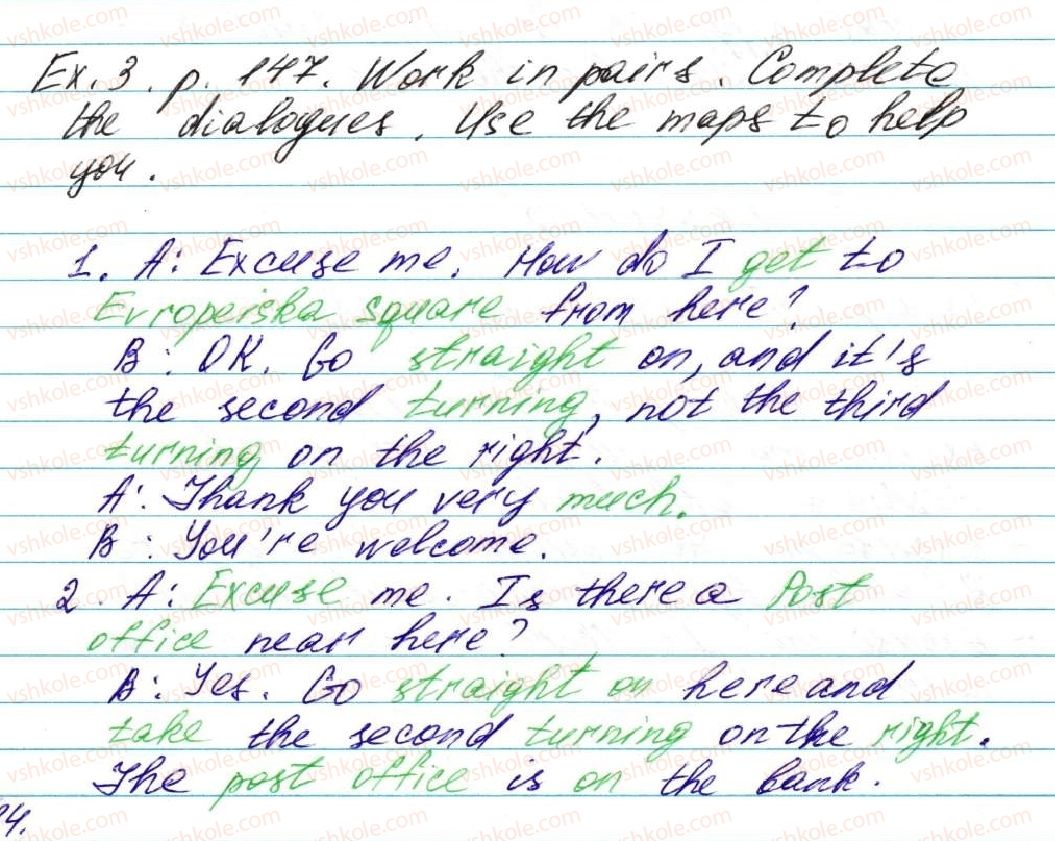 Ex. 3. p. 147. Work in pairs. Complete
the dialogues. Use the maps to help
you.
1. A: Excuse me. How do I get to
Evropeiska square from here?
B: OK. Go straight on, and it's
the second turning, not the third
turning on the right.
A: Thank you very much.
B: You're welcome.
2. A: Excuse me. Is there a Post
office near here?
B: Yes. Go straight on here and
take the second turning on the right.
The post office is on the bank.
4.
vshkole.com